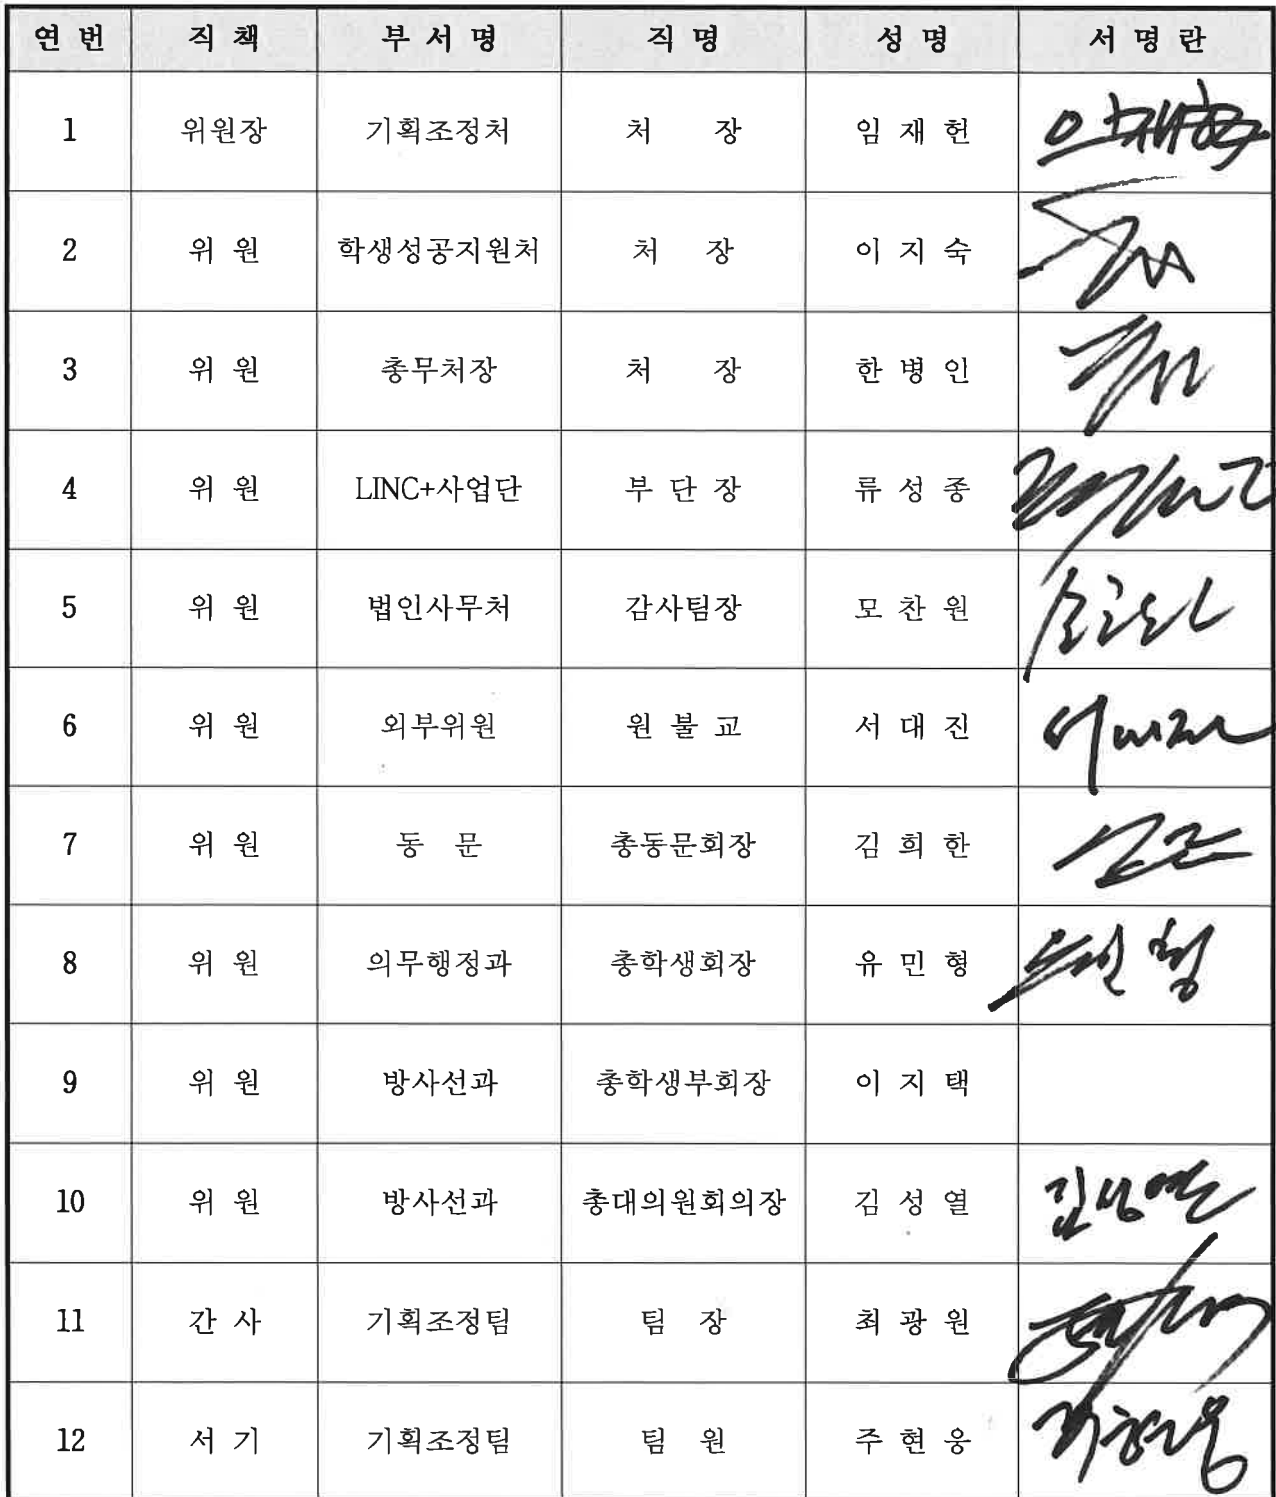 연 번 직 책 부 서 명 직 명 성 명 서 명 란
1 위원장 기획조정처 처 장 임 재 헌
2 위 원 학생성공지원처 처 장 이 지 숙
3 위 원 총무처장 처 장 한 병 인
4 위 원 LINC+사업단 부 단 장 류 성 종
5 위 원 법인사무처 감사팀장 모 찬 원
6 위 원 외부위원 원 불 교 서 대 진
7 위 원 동 문 총동문회장 김 희 한
8 위 원 의무행정과 총학생회장 유 민 형
9 위 원 방사선과 총학생부회장 이 지 택
10 위 원 방사선과 총대의원회의장 김 성 열 김성열
11 간 사 기획조정팀 팀 장 최 광 원
12 서 기 기획조정팀 팀 원 주 현 웅